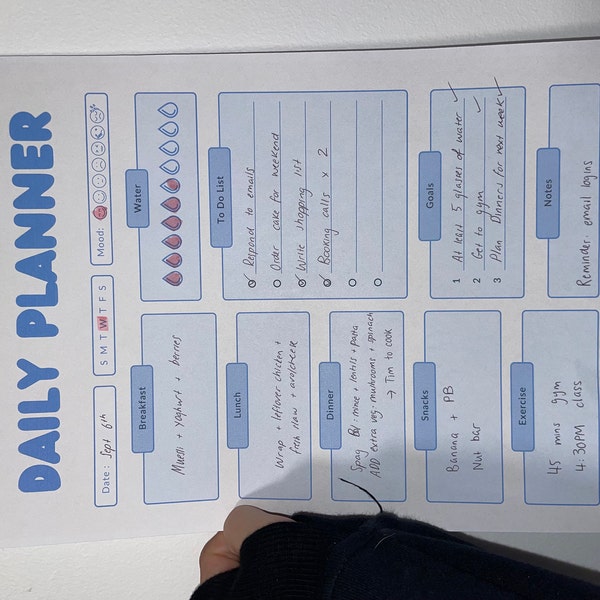 DAILY PLANNER
Date: Sept 6th
S M T W T F S
Mood:
Breakfast
Muesli + yoghurt + berries
Water
Lunch
Wrap + leftover chicken +
fresh slaw +
To Do List
Respond to emails
Order cake for weekend
Write shopping list
Booking calls x 2
Dinner
Spag Bol: mince + lentils + pasta
ADD extra veg: mushrooms + spinach
→ Tim to cook
Goals
1 At least 5 glasses of water ✓
2 Get to gym ✓
3 Plan Dinners for next week ✓
Snacks
Banana + PB
Nut bar
Notes
Reminder: email logins
Exercise
45 mins gym
4:30PM class